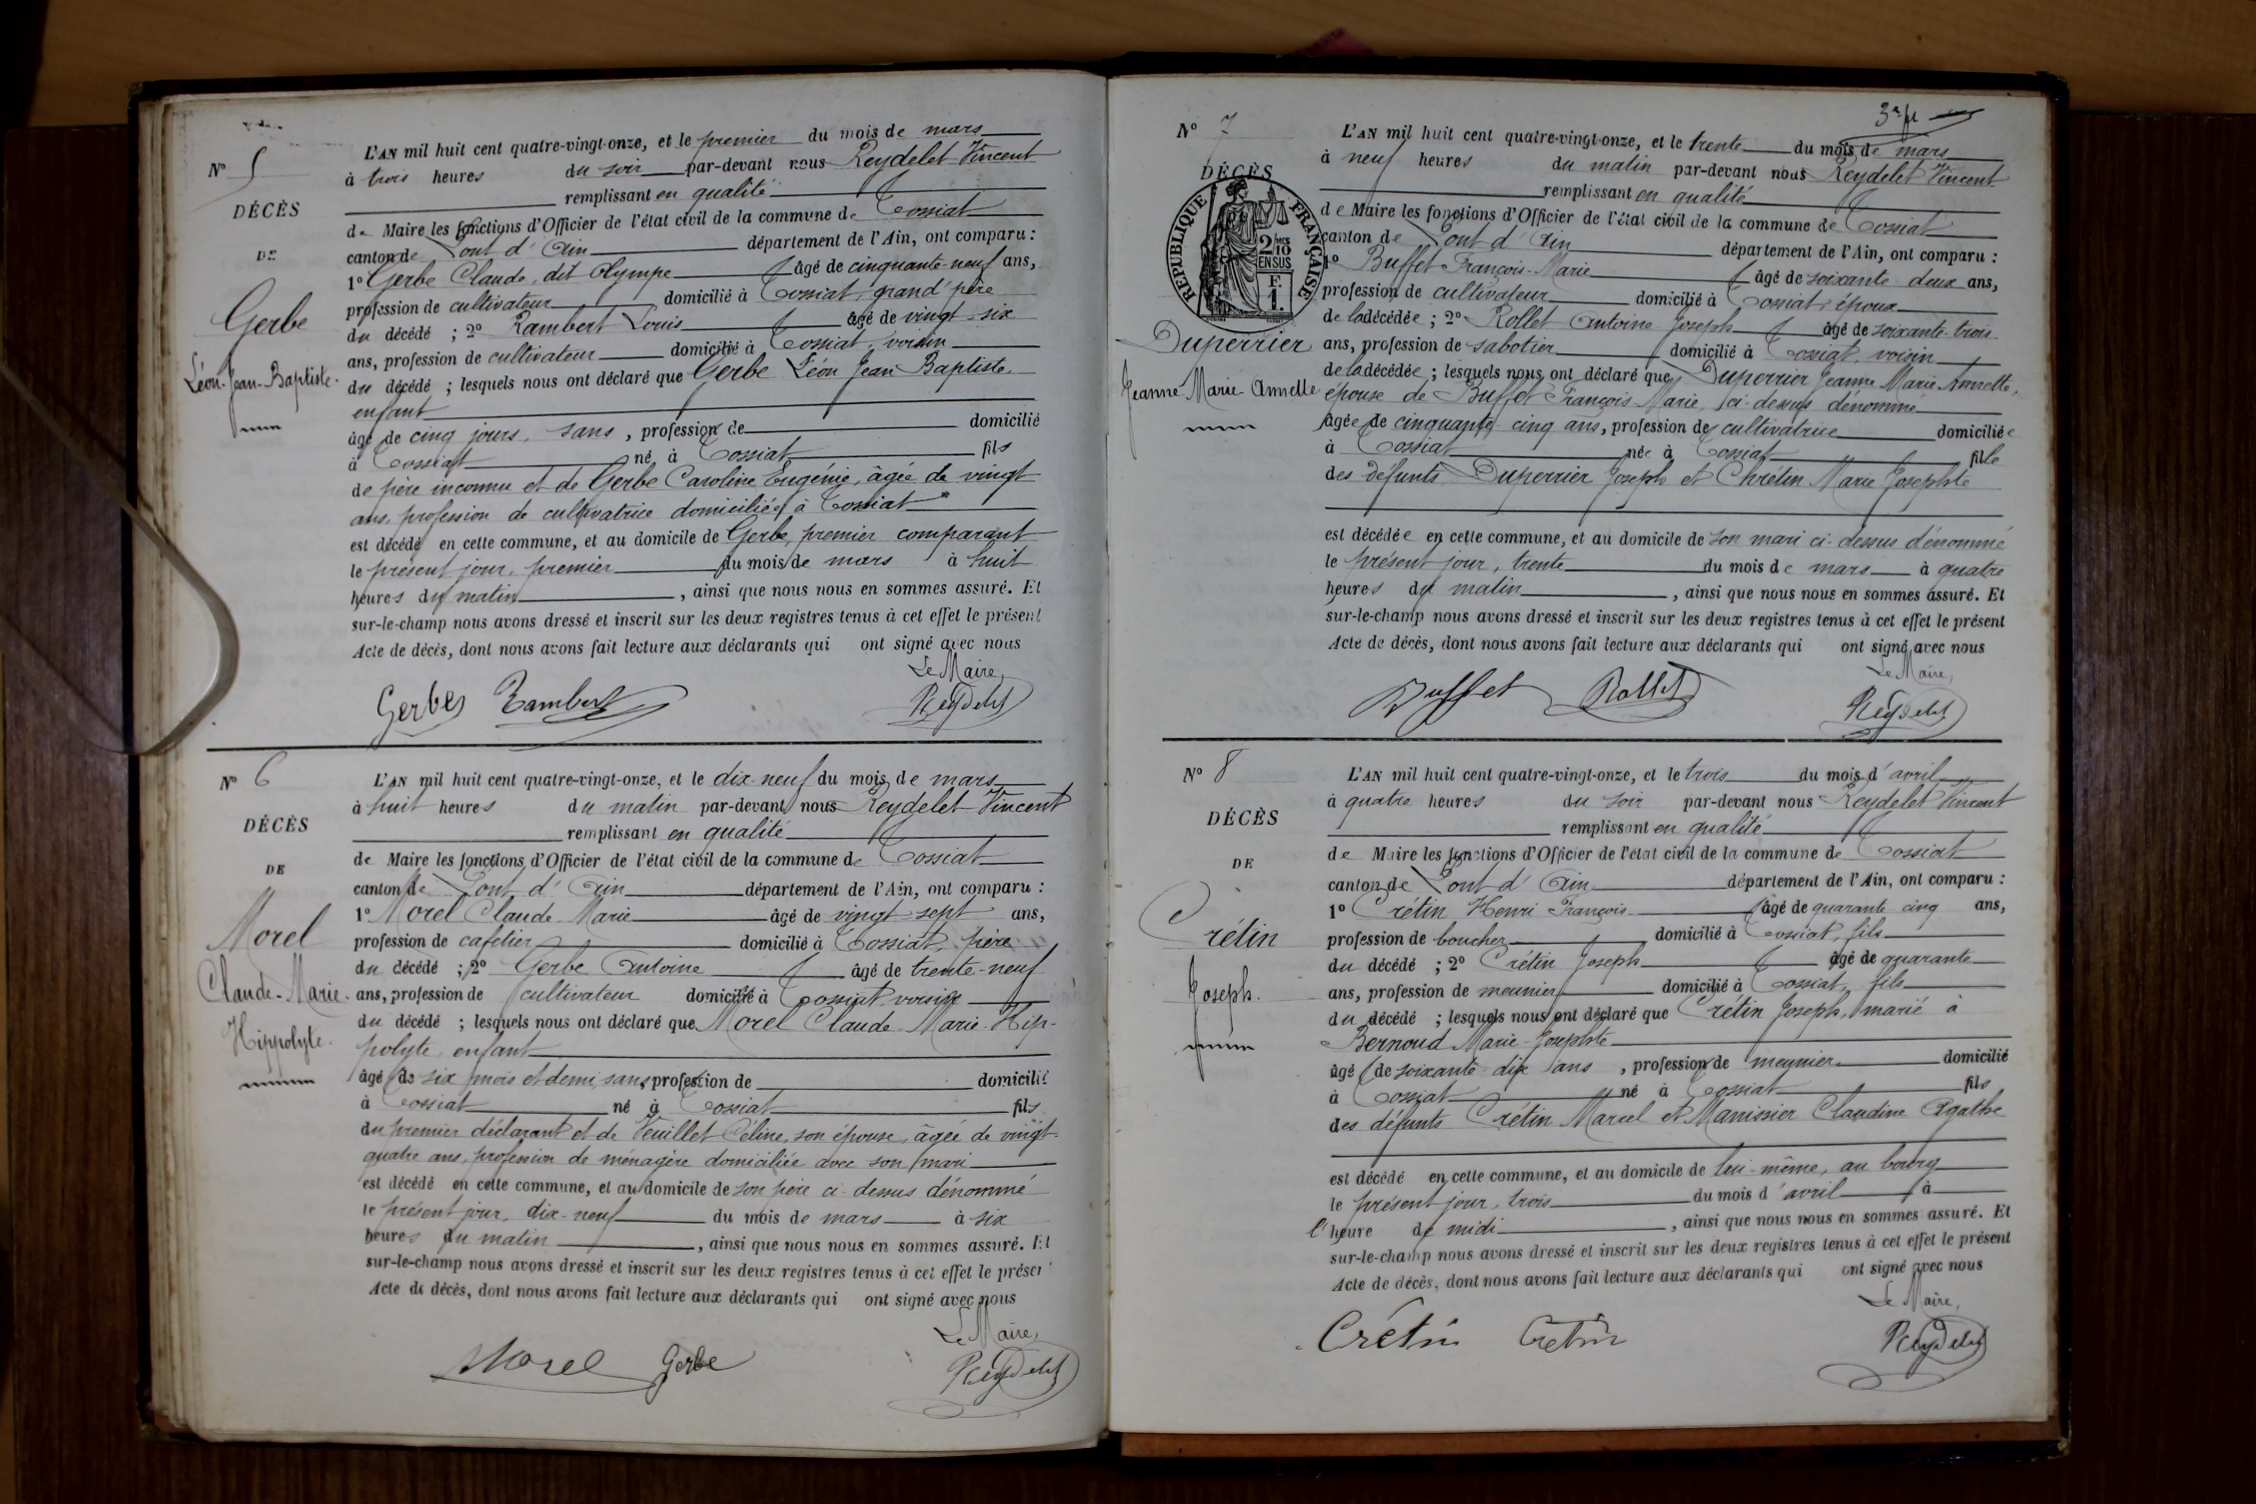 N° 5
DÉCÈS
DE
Gerbe
Léon-Jean-Baptiste.
L'AN mil huit cent quatre-vingt-onze, et le premier du mois de mars
à trois heures du soir par-devant nous Reydelet Vincent
remplissant en qualité
de Maire les fonctions d'Officier de l'état civil de la commune de Tossiat
canton de Pont d'Ain département de l'Ain, ont comparu :
1° Gerbe Claude, dit Olympe âgé de cinquante-neuf ans,
profession de cultivateur domicilié à Tossiat, grand'père
du décédé ; 2° Rambert Louis âgé de vingt-six
ans, profession de cultivateur domicilié à Tossiat, voisin
du décédé ; lesquels nous ont déclaré que Gerbe Léon Jean Baptiste
enfant
âgé de cinq jours, sans, profession de domicilié
à Tossiat né à Tossiat fils
de père inconnu et de Gerbe Caroline Eugénie, âgée de vingt
ans, profession de cultivatrice domiciliée à Tossiat
est décédé en cette commune, et au domicile de Gerbe, premier comparant
le présent jour, premier du mois de mars à huit
heures du matin, ainsi que nous nous en sommes assuré. Et
sur-le-champ nous avons dressé et inscrit sur les deux registres tenus à cet effet le présent
Acte de décès, dont nous avons fait lecture aux déclarants qui ont signé avec nous
Le Maire,
Gerbe Rambert Reydelet
N° 6
DÉCÈS
DE
Morel
Claude-Marie-
Hippolyte.
L'AN mil huit cent quatre-vingt-onze, et le dix-neuf du mois de mars
à huit heures du matin par-devant nous Reydelet Vincent
remplissant en qualité
de Maire les fonctions d'Officier de l'état civil de la commune de Tossiat
canton de Pont d'Ain département de l'Ain, ont comparu :
1° Morel Claude Marie âgé de vingt sept ans,
profession de cafetier domicilié à Tossiat, père
du décédé ; 2° Gerbe Antoine âgé de trente-neuf
ans, profession de cultivateur domicilié à Tossiat, voisin
du décédé ; lesquels nous ont déclaré que Morel Claude-Marie-Hip-
polyte, enfant
âgé de six mois et demi, sans, profession de domicilié
à Tossiat né à Tossiat fils
du premier déclarant et de Veuillet Céline, son épouse, âgée de vingt-
quatre ans, profession de ménagère domiciliée avec son mari
est décédé en cette commune, et au domicile de son père ci-dessus dénommé
le présent jour, dix-neuf du mois de mars à six
heures du matin, ainsi que nous nous en sommes assuré. Et
sur-le-champ nous avons dressé et inscrit sur les deux registres tenus à cet effet le présent
Acte de décès, dont nous avons fait lecture aux déclarants qui ont signé avec nous
Le Maire,
Morel Gerbe Reydelet
N° 7
DÉCÈS
RÉPUBLIQUE FRANÇAISE
2/10 EN SUS
F. 1.
Duperrier
Jeanne-Marie-Annette
L'AN mil huit cent quatre-vingt-onze, et le trente du mois de mars
à neuf heures du matin par-devant nous Reydelet Vincent
remplissant en qualité
de Maire les fonctions d'Officier de l'état civil de la commune de Tossiat
canton de Pont d'Ain département de l'Ain, ont comparu :
1° Buffet François-Marie âgé de soixante deux ans,
profession de cultivateur domicilié à Tossiat, époux
de la décédée ; 2° Rollet Antoine Joseph âgé de soixante-trois
ans, profession de sabotier domicilié à Tossiat, voisin
de la décédée ; lesquels nous ont déclaré que Duperrier Jeanne Marie Annette,
épouse de Buffet François-Marie, ci-dessus dénommé
âgée de cinquante-cinq ans, profession de cultivatrice domiciliée
à Tossiat née à Tossiat fille
des défunts Duperrier Joseph et Chrétin Marie Josephte
est décédée en cette commune, et au domicile de son mari ci-dessus dénommé
le présent jour, trente du mois de mars à quatre
heures du matin, ainsi que nous nous en sommes assuré. Et
sur-le-champ nous avons dressé et inscrit sur les deux registres tenus à cet effet le présent
Acte de décès, dont nous avons fait lecture aux déclarants qui ont signé avec nous
Le Maire,
Buffet Rollet Reydelet
N° 8
DÉCÈS
DE
Crétin
Joseph.
L'AN mil huit cent quatre-vingt-onze, et le trois du mois d'avril
à quatre heures du soir par-devant nous Reydelet Vincent
remplissant en qualité
de Maire les fonctions d'Officier de l'état civil de la commune de Tossiat
canton de Pont d'Ain département de l'Ain, ont comparu :
1° Crétin Henri François âgé de quarante cinq ans,
profession de boucher domicilié à Tossiat, fils
du décédé ; 2° Crétin Joseph âgé de quarante
ans, profession de meunier domicilié à Tossiat, fils
du décédé ; lesquels nous ont déclaré que Crétin Joseph, marié à
Bernoud Marie-Josephte
âgé de soixante-dix ans, profession de meunier domicilié
à Tossiat né à Tossiat fils
des défunts Crétin Marcel et Manissier Claudine Agathe
est décédé en cette commune, et au domicile de lui-même, au bourg
le présent jour, trois du mois d'avril à
l'heure de midi, ainsi que nous nous en sommes assuré. Et
sur-le-champ nous avons dressé et inscrit sur les deux registres tenus à cet effet le présent
Acte de décès, dont nous avons fait lecture aux déclarants qui ont signé avec nous
Le Maire,
Crétin Crétin Reydelet